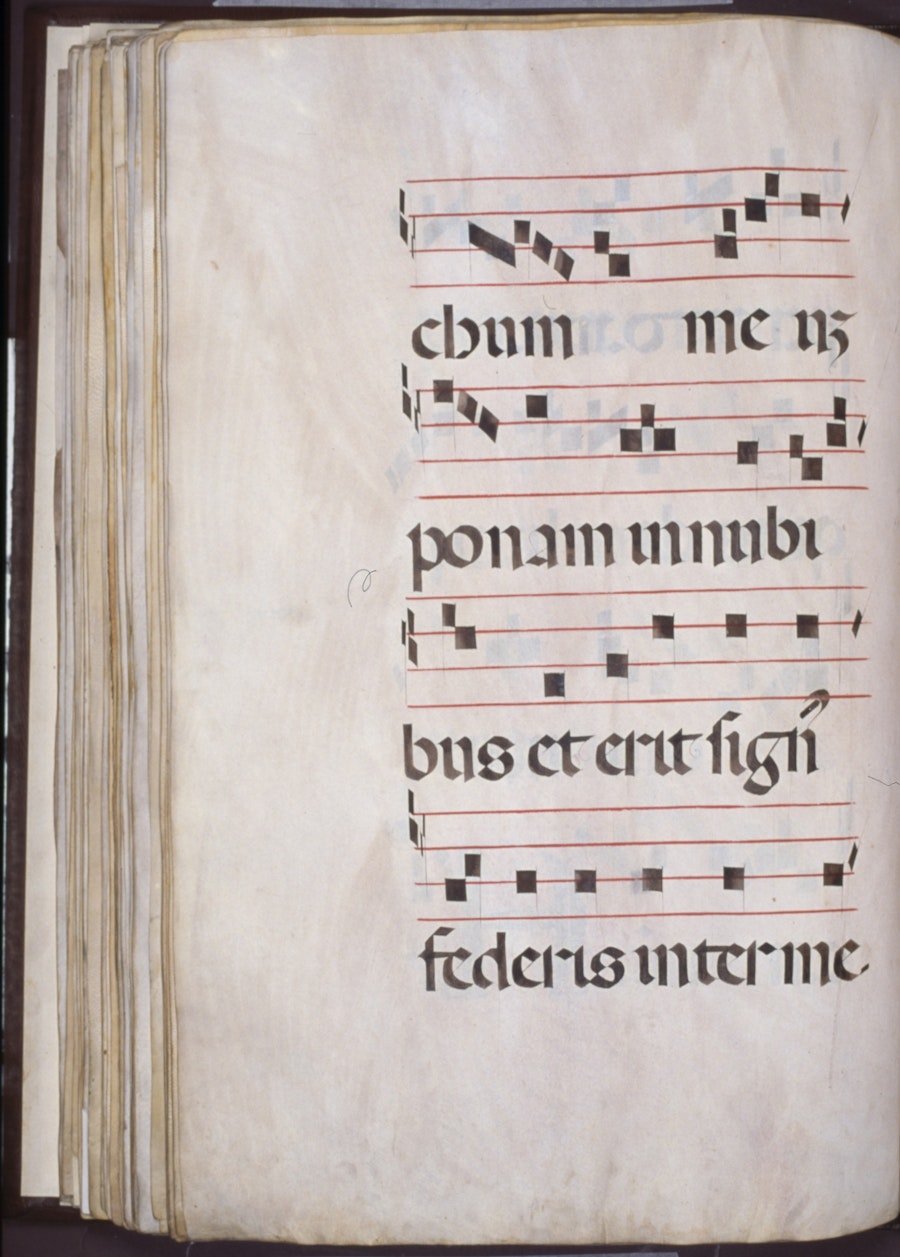 chum meuʒ
ponam in nubi
bus et erit sign̄
federis inter me